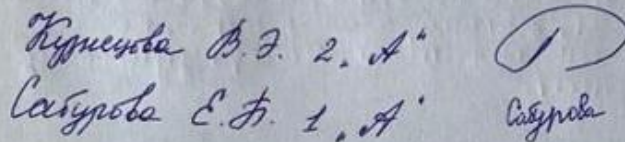 Кузнецова В.Э. 2 „А“
Сабурова Е.Б. 1 „А“ Сабурова